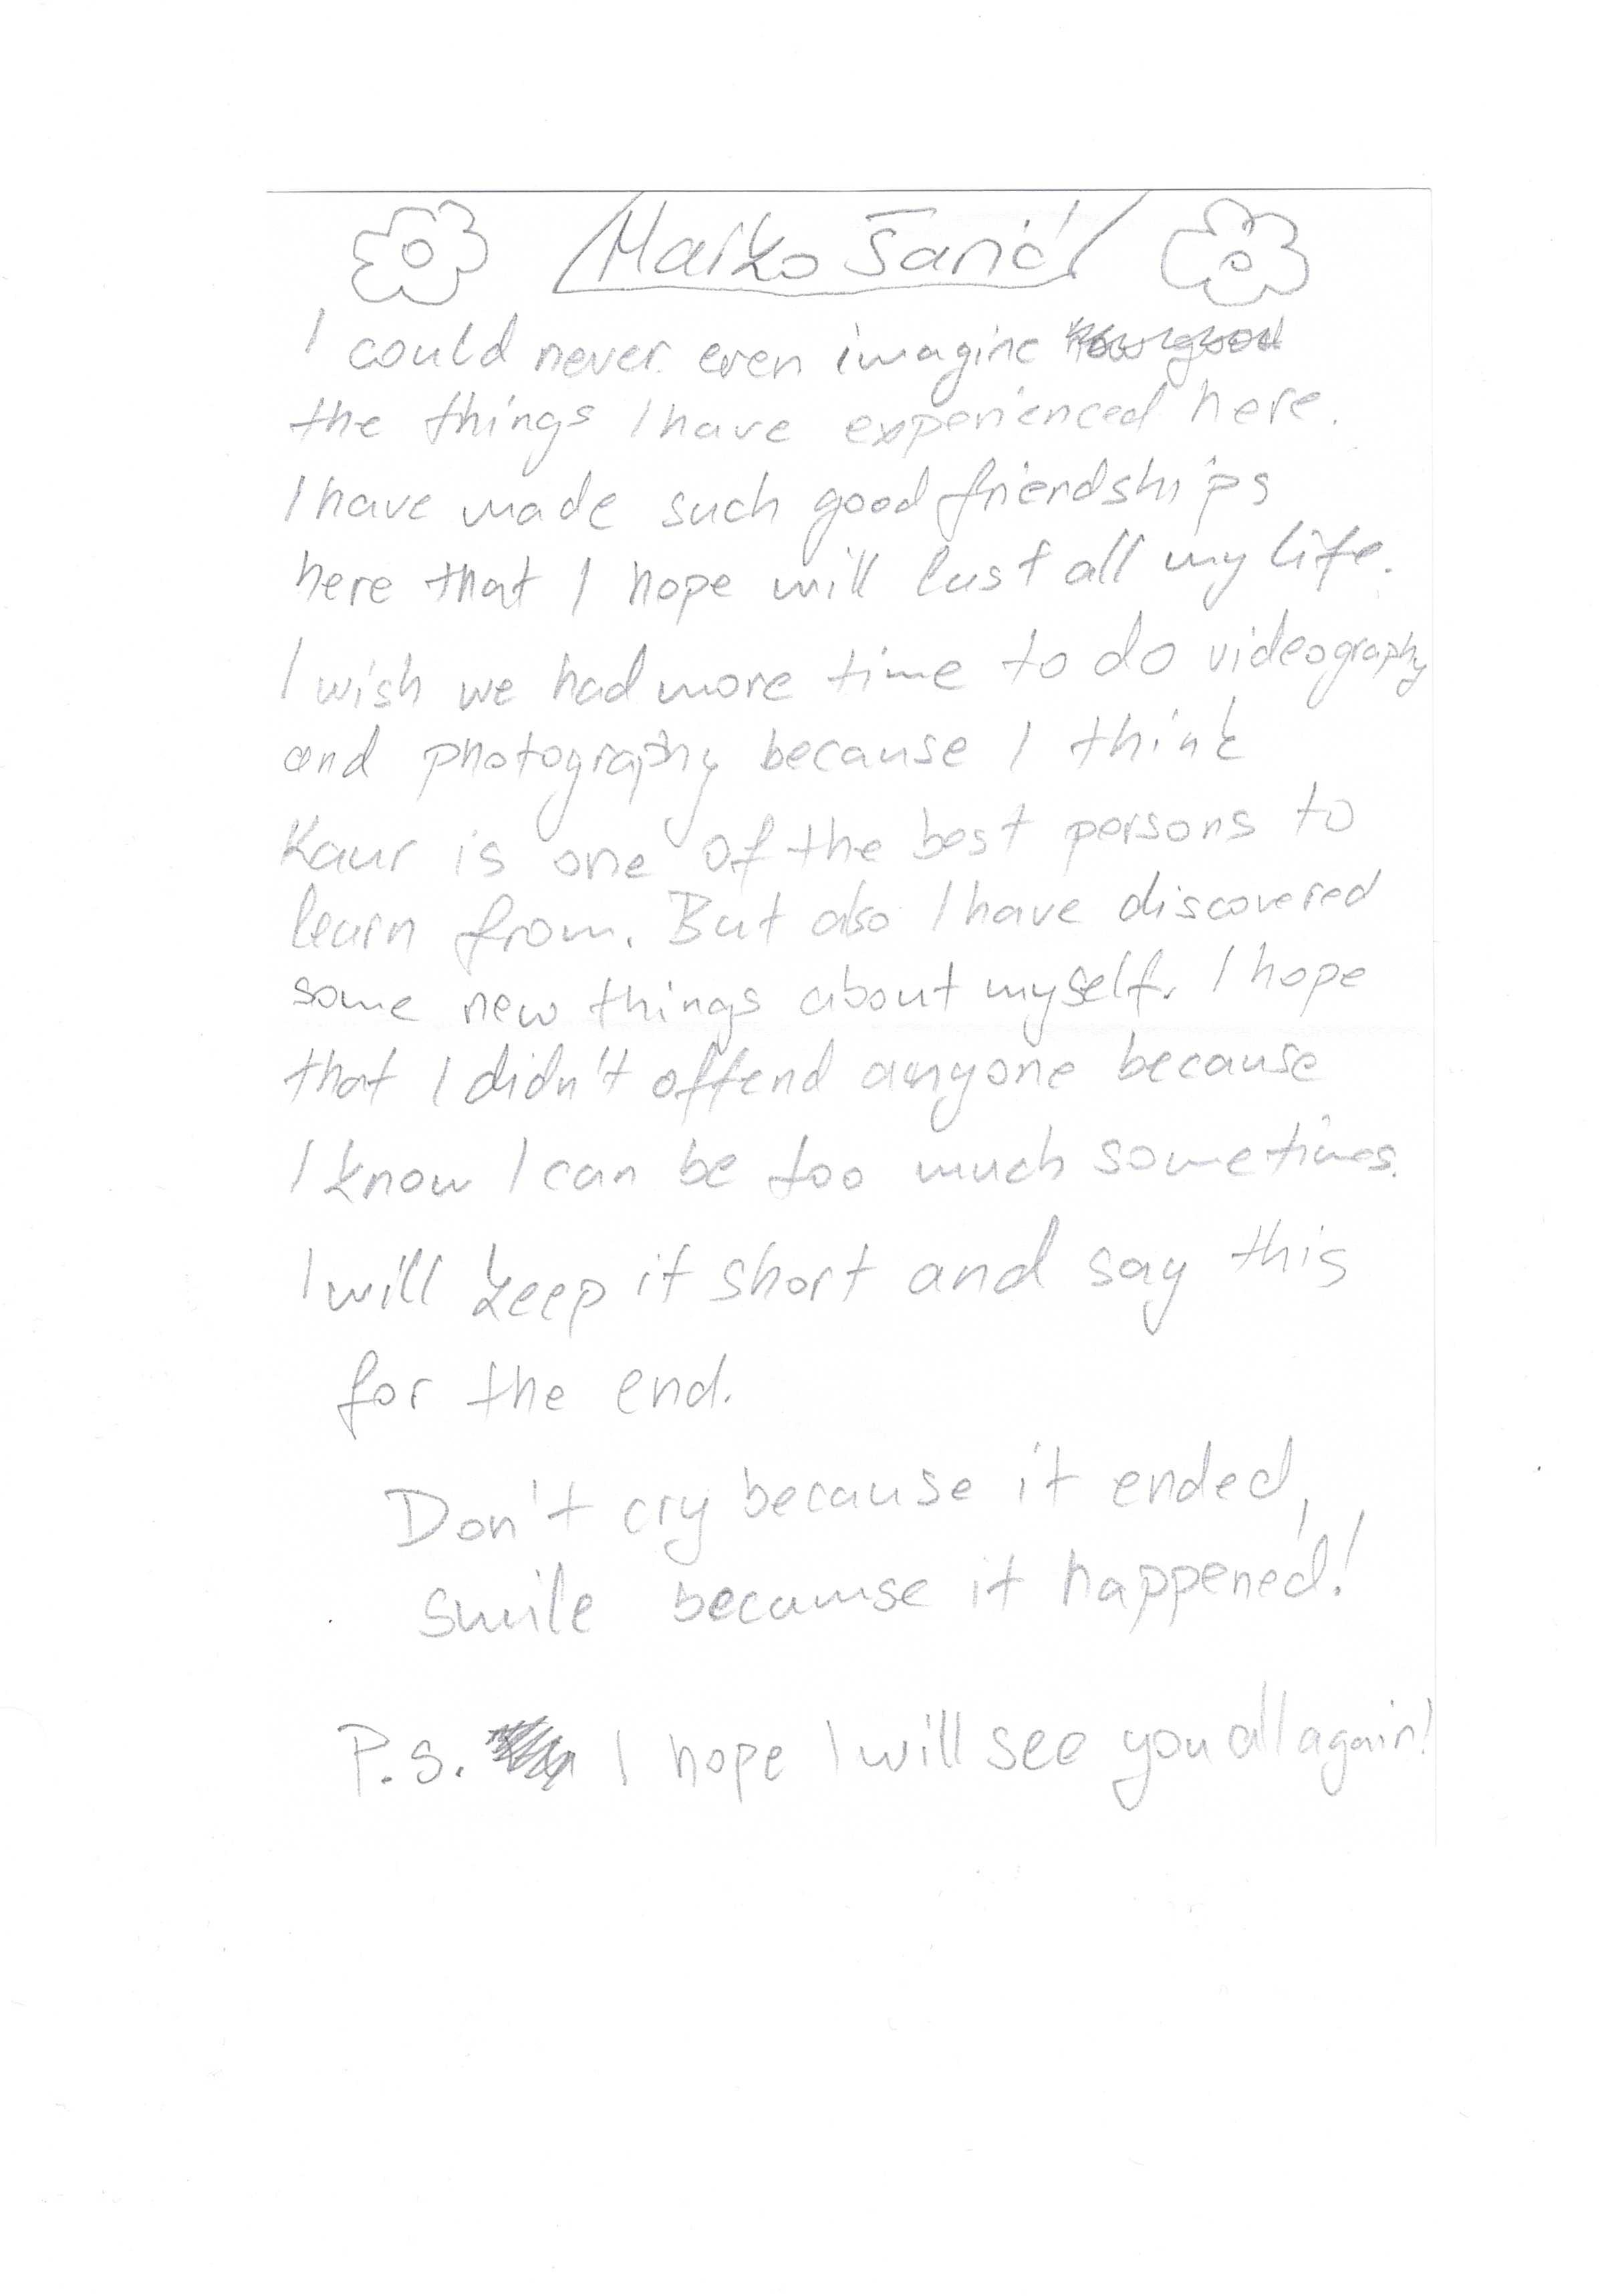 Marko Šarić
I could never even imagine how good
the things I have experienced here.
I have made such good friendships
here that I hope will last all my life.
I wish we had more time to do videography
and photography because I think
Kaur is one of the best persons to
learn from. But also I have discovered
some new things about myself. I hope
that I didn't offend anyone because
I know I can be too much sometimes.
I will keep it short and say this
for the end.
Don't cry because it ended,
smile because it happened!
P.S. I hope I will see you all again!